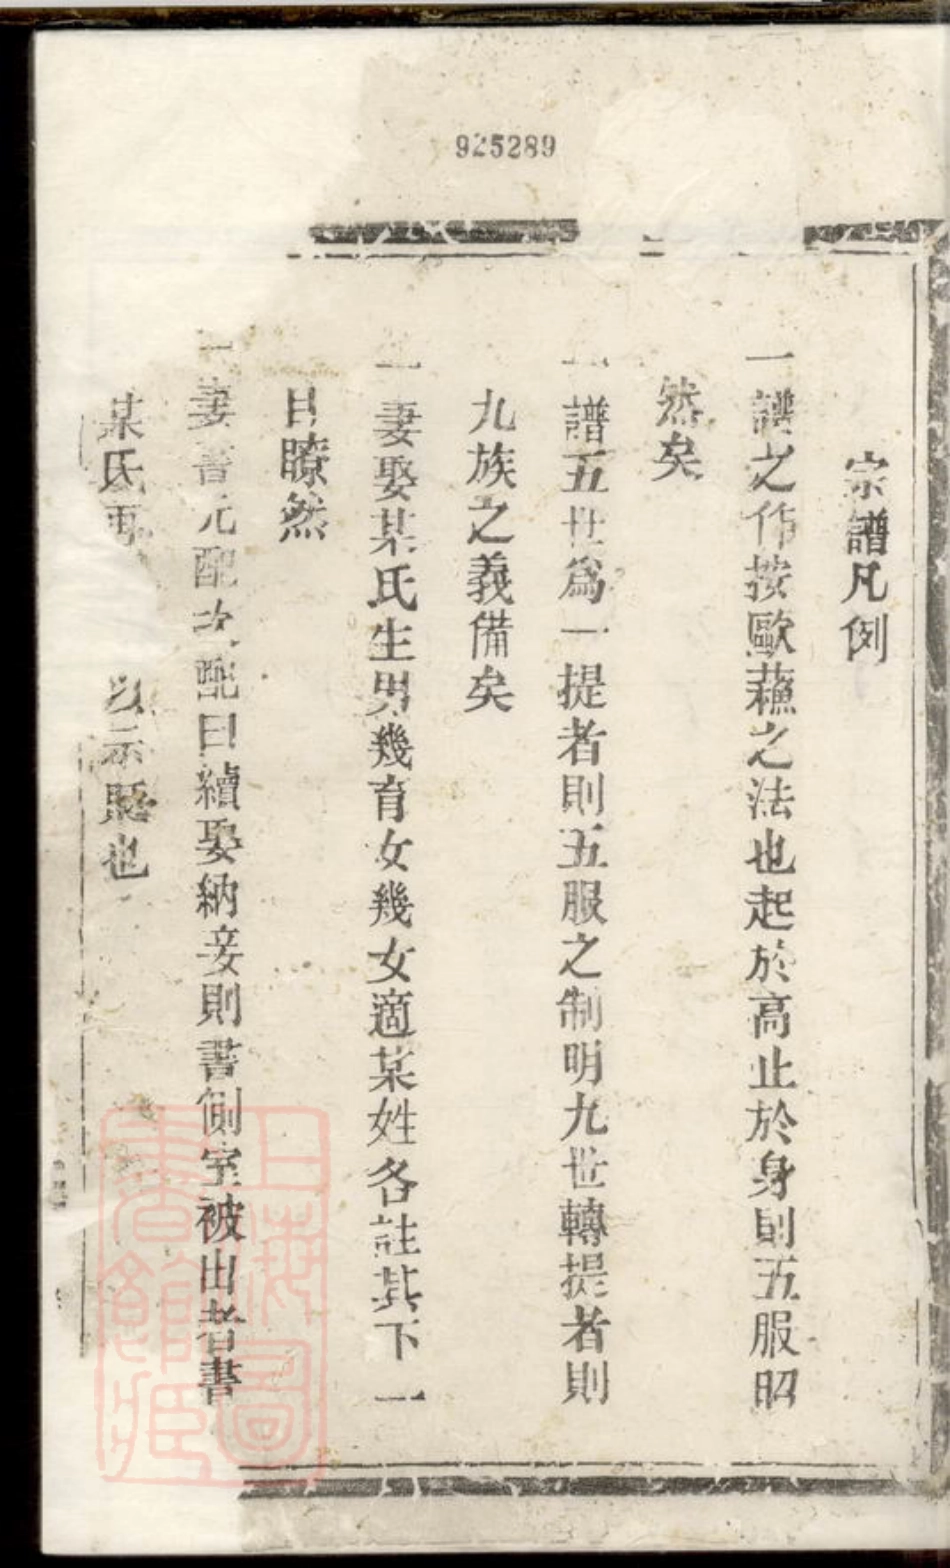 925289
宗譜凡例
一譜之作按歐蘓之法也起於高止於身則五服昭
然矣
一譜五世爲一提者則五服之制明九世轉提者則
九族之義備矣
一妻娶某氏生男幾育女幾女適某姓各註其下一
目瞭然
一妻書元配次配曰續娶納妾則書側室被出者書
某氏再 以示貶也
上海圖書館藏